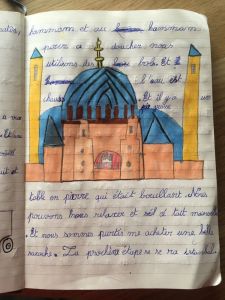 hammam et au hammam
pour se doucher nous
utilisons des bols. Et
l'eau est
chaude Et il y a un
table en pierre qui était bouillant Nous
pouvons nous relaxer et
Et nous sommes partis me acheter une belle
La prochaine étape se ra istanbul.